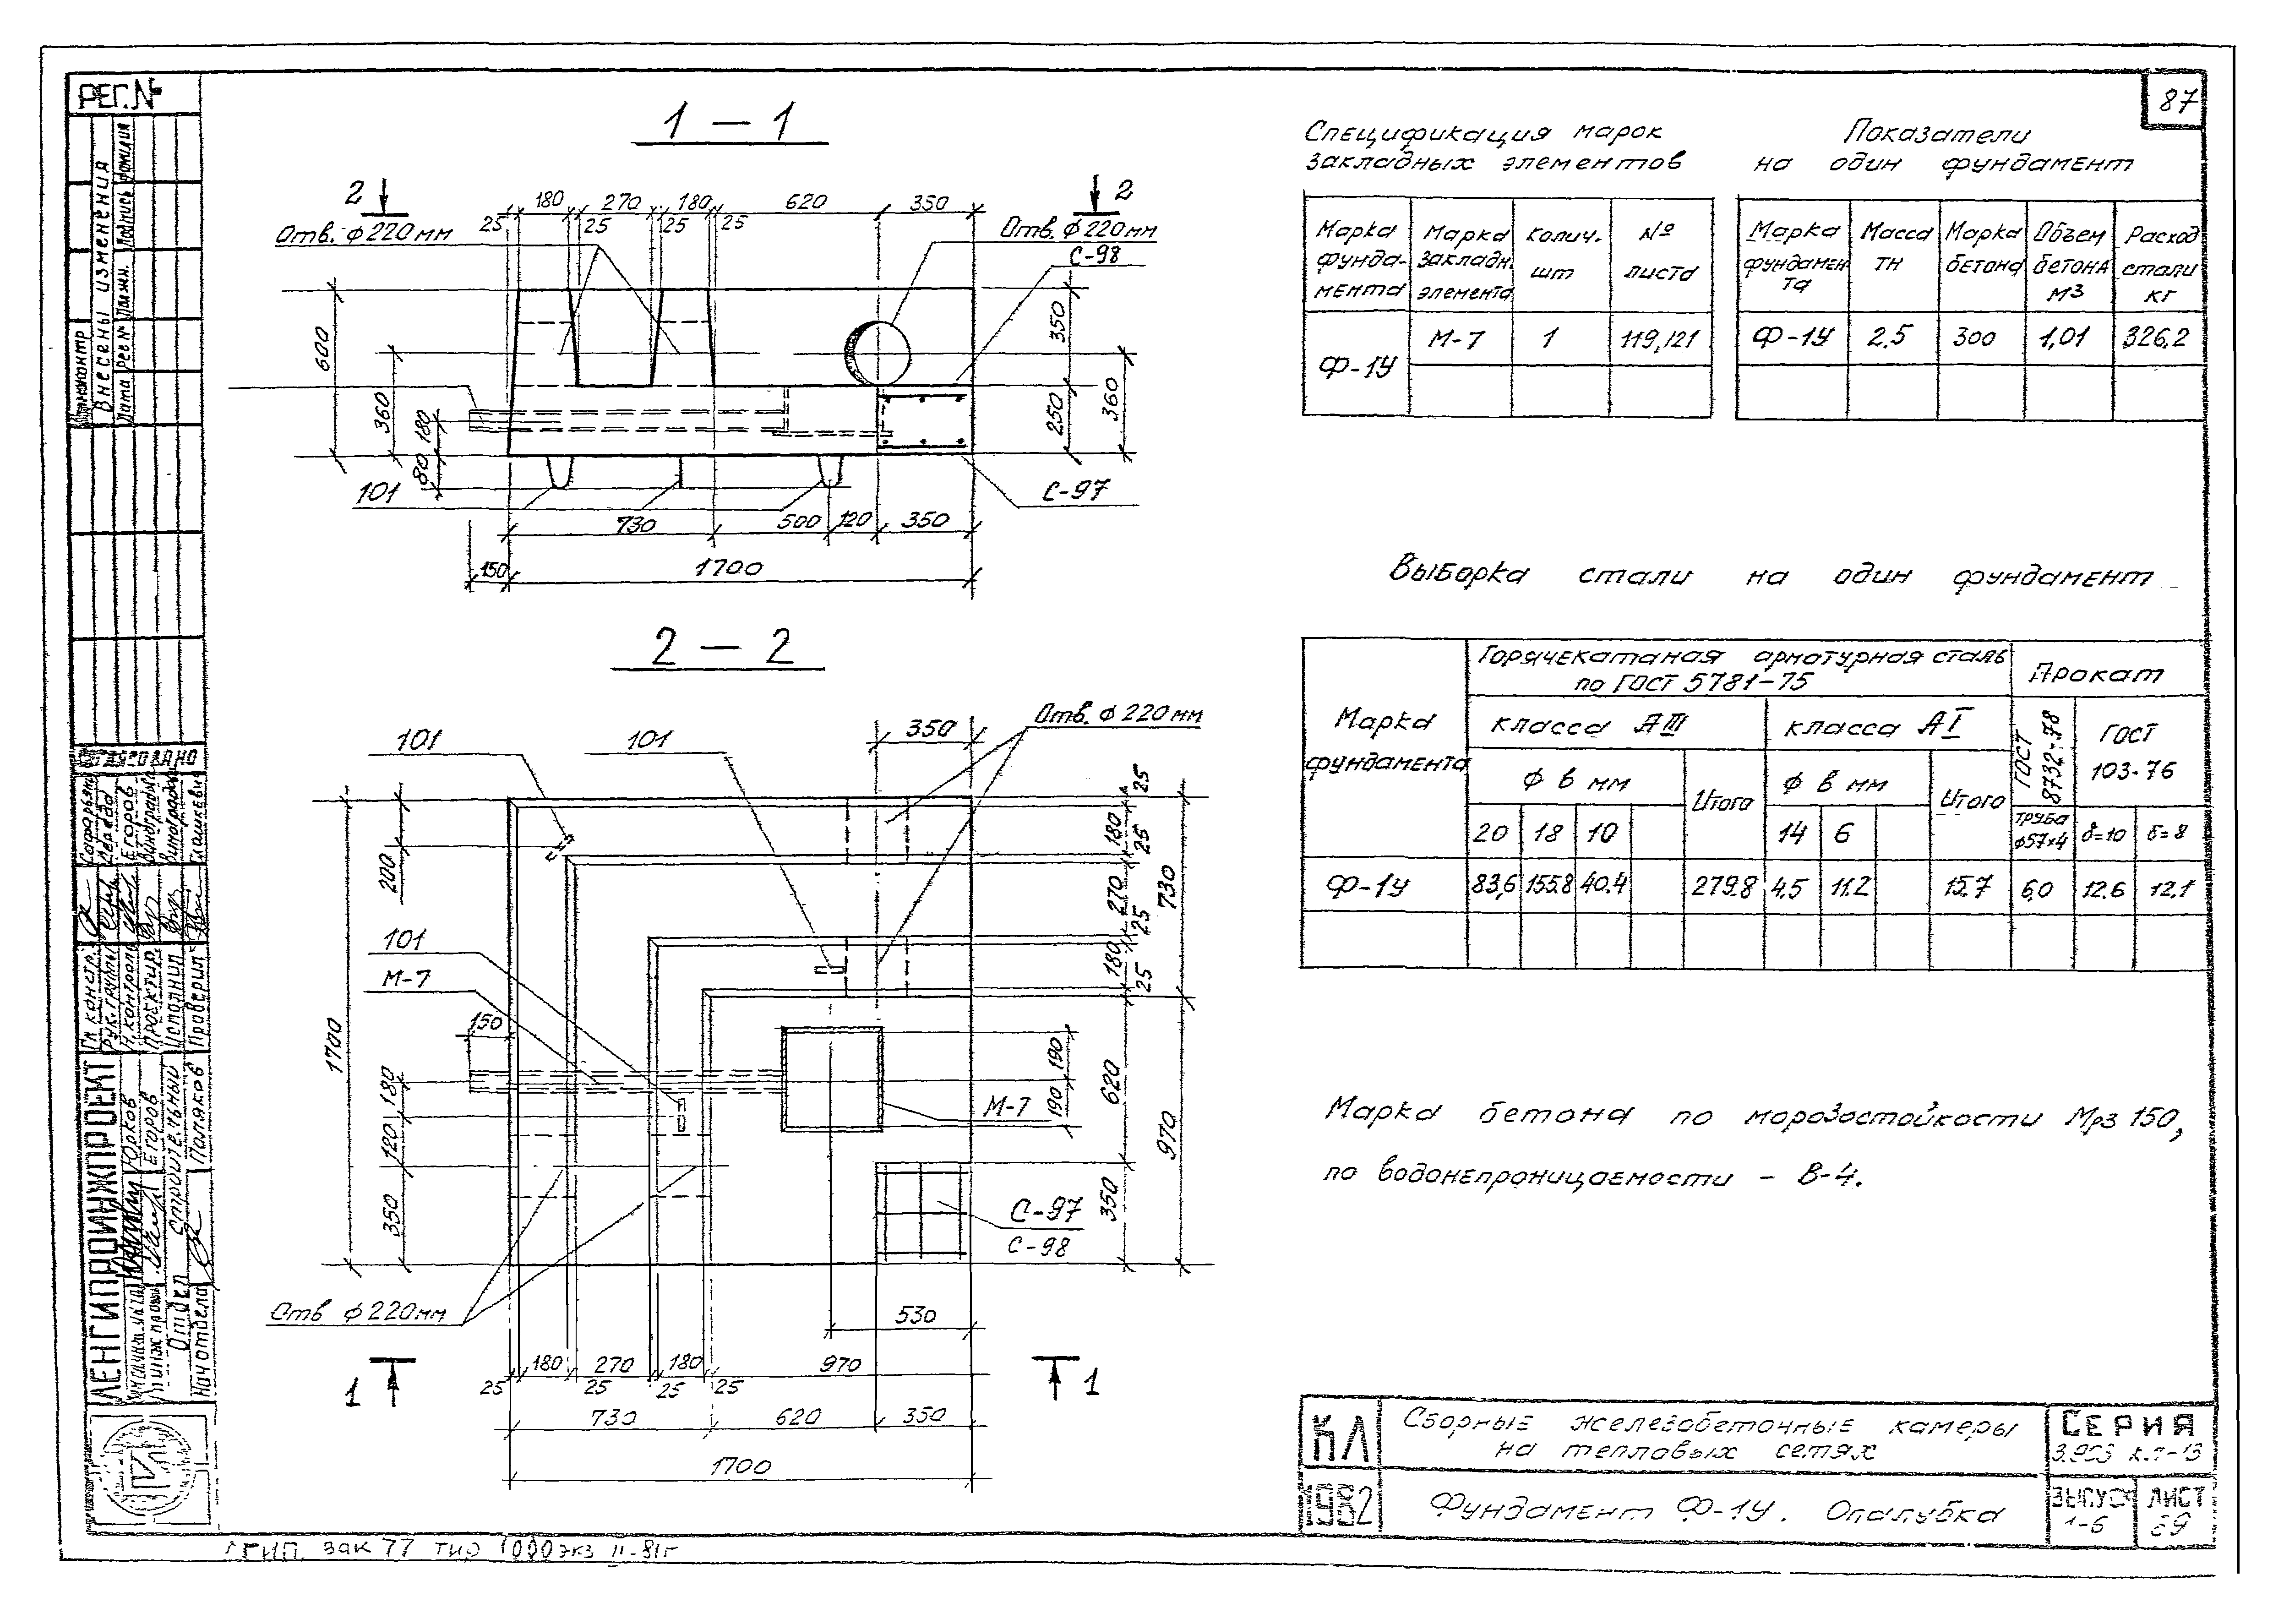 87
РЕГ.№
Внесены изменения
Дата
рег№
Должн.
Подпись
Фамилия
1 — 1
2
2
180
270
180
620
350
25
25
25
25
Отв. ф 220мм
Отв. ф 220мм
С-98
600
360
180
80
350
250
360
101
С-97
730
500
120
350
150
1700
2 — 2
101
101
350
Отв. ф 220 мм
200
1700
101
М-7
150
180
120
350
25
180
25
270
25
180
25
730
190
190
М-7
620
970
350
С-97
С-98
Отв ф 220мм
530
180
270
180
970
25
25
25
25
1
1
730
620
350
1700
Спецификация марок
закладных элементов
Марка фунда-мента
Марка закладн. элемента
Колич. шт
№ листа
Ф-1У
М-7
1
119,121
Показатели
на один фундамент
Марка фундамен та
Масса тн
Марка бетона
Объем бетона м3
Расход стали кг
Ф-1У
2.5
300
1,01
326.2
Выборка стали на один фундамент
Марка фундамента
Горячекатаная арматурная сталь
по ГОСТ 5781-75
Прокат
класса АIII
класса АI
ГОСТ 8732-78
ГОСТ 103-76
ф в мм
Итого
ф в мм
Итого
20
18
10
14
6
труба ф57×4
δ=10
δ=8
Ф-1У
83,6
155.8
40.4
279.8
4.5
11.2
15.7
6.0
12.6
12.1
Марка бетона по морозостойкости Мрз 150,
по водонепроницаемости – В-4.
Согласовано
Гл констр.
Рук. группы
Н.контроль
Егоров
Проектир.
Виноградова
Исполнил
Виноградова
Проверил
ЛЕНГИПРОИНЖПРОЕКТ
Юрков
Егоров
Отдел
строительный
Нач отдела
Поляков
КЛ
1982
Сборные железобетонные камеры
на тепловых сетях
СЕРИЯ
Фундамент Ф-1У. Опалубка
ВЫПУСК
1-6
ЛИСТ
зак 77 тир 1000экз